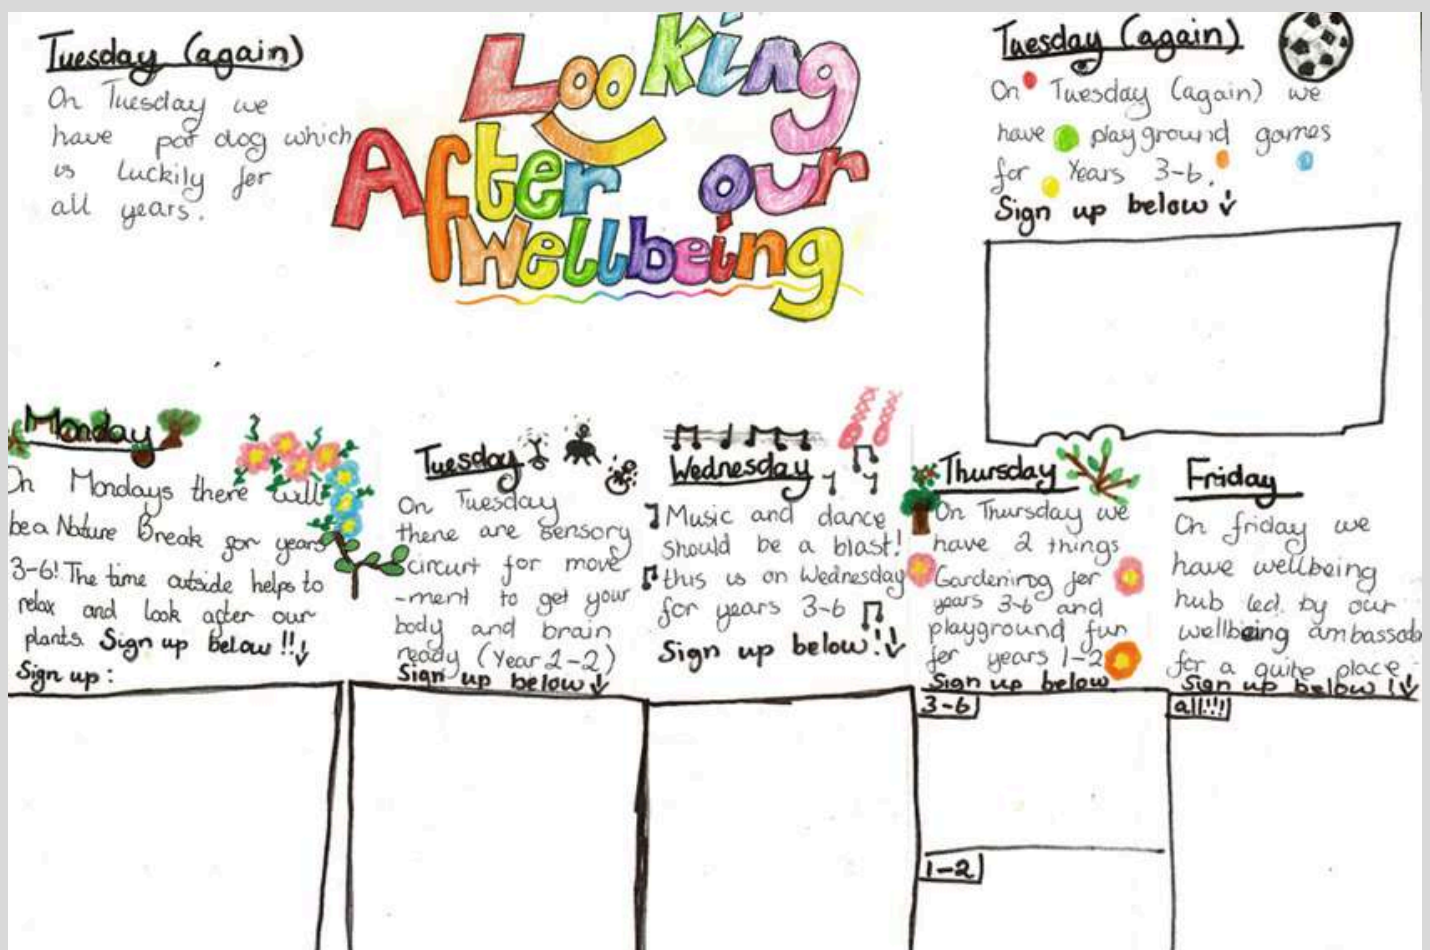 Tuesday (again)
On Tuesday we
have pat dog which
is luckily for
all years.
Looking
After our
Wellbeing
Tuesday (again)
On Tuesday (again) we
have playground games
for Years 3-6.
Sign up below
Monday
On Mondays there will
be a Nature Break for years
3-6! The time outside helps to
relax and look after our
plants. Sign up below!!
Sign up:
Tuesday
On Tuesday
there are sensory
circuit for move
-ment to get your
body and brain
ready (Year 1-2)
Sign up below
Wednesday
Music and dance
should be a blast!
this is on Wednesday
for years 3-6
Sign up below!!
Thursday
On Thursday we
have 2 things
Gardening for
years 3-6 and
playground fun
for years 1-2
Sign up below
3-6
1-2
Friday
On friday we
have wellbeing
hub led by our
wellbeing ambassado
for a quite place.
Sign up below!
all!!!